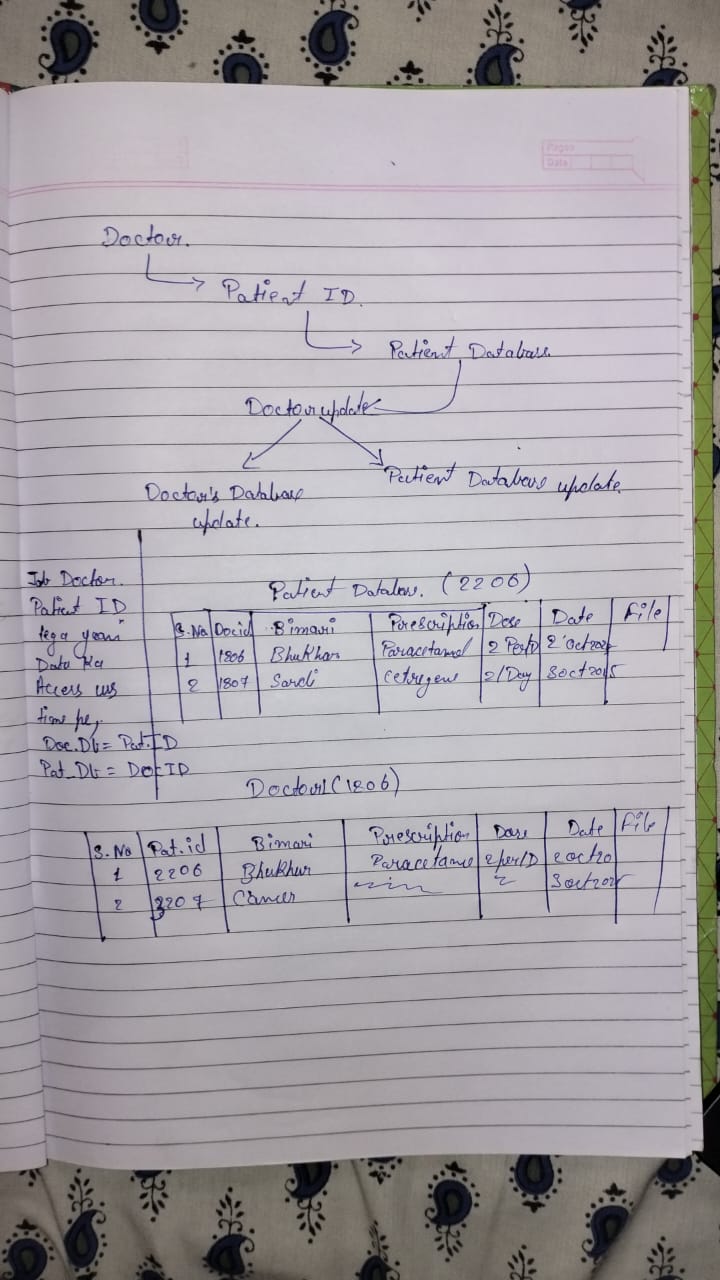 Pages
Date
Doctor.
Patient ID.
Patient Database.
Doctor update
Doctor's Database update.
Patient Database update.
Job Doctor.
Patient ID
lega yani
Data ka
Access us
time pe,
Doc.Db = Pat.ID
Pat_Db = Doc ID
Patient Database. (2206)
S.No Docid Bimari Prescription Dose Date File
1 1206 Bhukhar Paracetamol 2 Per/D 2 oct 202
2 1807 Sardi Cetregene 2/Day 3oct 2025
Doctor (1206)
S.No Pat.id Bimari Prescription Dose Date File
1 2206 Bhukhur Paracetame 2per/D 2oct20
2 3207 Cancer 3oct202